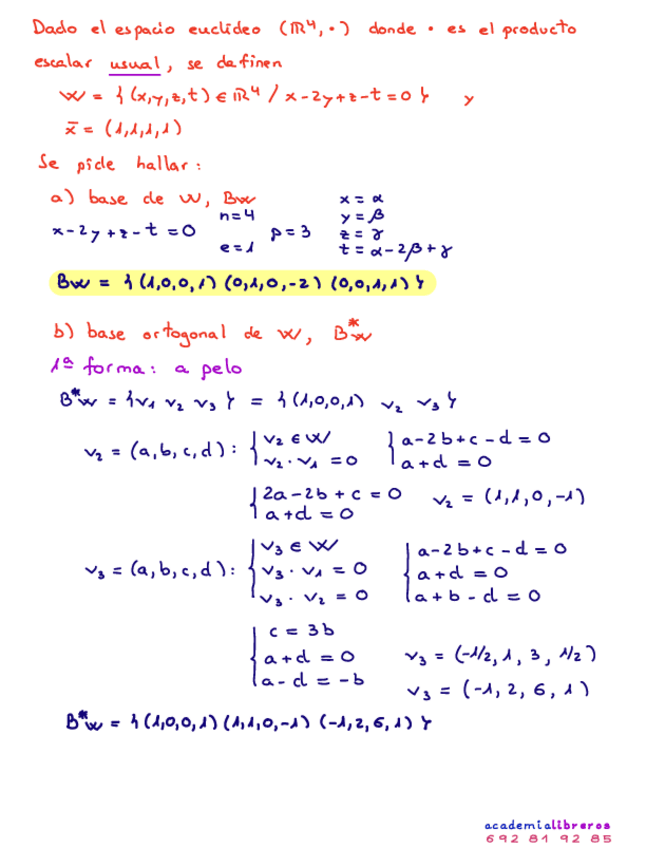 Dado el espacio euclídeo (ℝ⁴, ·) donde · es el producto
escalar usual, se definen
W = { (x,y,z,t) ∈ ℝ⁴ / x-2y+z-t=0 } y
x̄ = (1,1,1,1)
Se pide hallar:
a) base de W, Bw
x-2y+z-t=0 n=4 e=1 p=3
x = α
y = β
z = γ
t = α-2β+γ
Bw = { (1,0,0,1) (0,1,0,-2) (0,0,1,1) }
b) base ortogonal de W, B*w
1ª forma: a pelo
B*w = { v₁ v₂ v₃ } = { (1,0,0,1) v₂ v₃ }
v₂ = (a,b,c,d): { v₂ ∈ W { a-2b+c-d=0
v₂ · v₁ = 0 a+d=0
{ 2a-2b+c=0 v₂ = (1,1,0,-1)
a+d=0
v₃ = (a,b,c,d): { v₃ ∈ W { a-2b+c-d=0
v₃ · v₁ = 0 a+d=0
v₃ · v₂ = 0 a+b-d=0
{ c = 3b
a+d=0 v₃ = (-1/2, 1, 3, 1/2)
a-d=-b v₃ = (-1, 2, 6, 1)
B*w = { (1,0,0,1) (1,1,0,-1) (-1,2,6,1) }
academialibreros
692 81 92 85